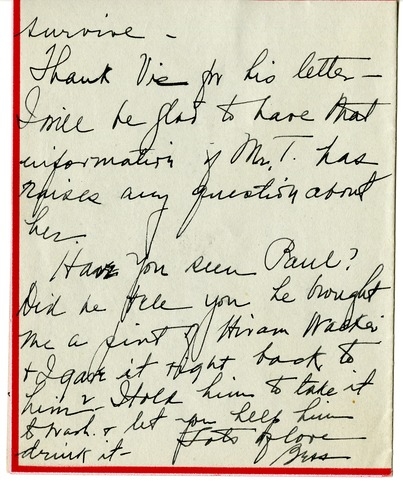 survive -
Thank Vic for his letter -
I will be glad to have that
information if Mr. T. has
raises any question about
her.
Have you seen Paul?
Did he tell you he brought
me a pint of Hiram Walker
& I gave it right back to
him - I told him to take it
to Wash. & let you help him
drink it - Lots of love
Bess